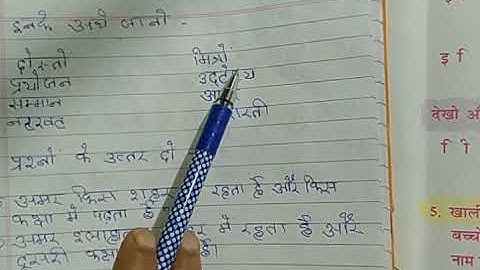 इनके अर्थ जानो -
दोस्तों मित्रों
प्रयोजन उद्देश्य
सम्मान
नटखट
प्रश्नों के उत्तर दो
अमर किस शहर रहता है और किस
कक्षा में पढ़ता है
अमर में रहता है और
दूसरी
इ f
देखो
f ी
5. खाली
बच्चे
नाम